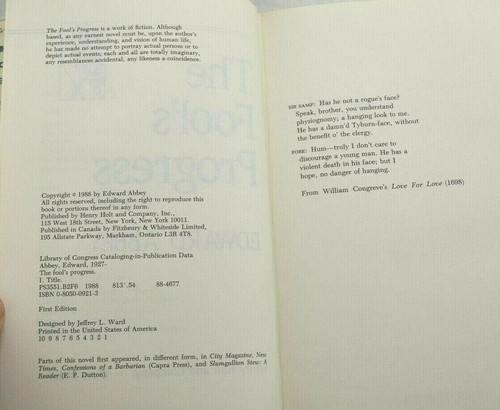 The Fool's Progress is a work of fiction. Although
based, as any earnest novel must be, upon the author's
experience, understanding, and vision of human life,
he has made no attempt to portray actual persons or to
depict actual events; each and all are totally imaginary,
any resemblances accidental, any likeness a coincidence.
Copyright © 1988 by Edward Abbey
All rights reserved, including the right to reproduce this
book or portions thereof in any form.
Published by Henry Holt and Company, Inc.,
115 West 18th Street, New York, New York 10011.
Published in Canada by Fitzhenry & Whiteside Limited,
195 Allstate Parkway, Markham, Ontario L3R 4T8.
Library of Congress Cataloging-in-Publication Data
Abbey, Edward, 1927-
The fool's progress.
I. Title.
PS3551.B2F6 1988 813'.54 88-4677
ISBN 0-8050-0921-3
First Edition
Designed by Jeffrey L. Ward
Printed in the United States of America
10 9 8 7 6 5 4 3 2 1
Parts of this novel first appeared, in different form, in City Magazine, New
Times, Confessions of a Barbarian (Capra Press), and Slumgullion Stew: A
Reader (E. P. Dutton).
SIR SAMP: Has he not a rogue's face?
Speak, brother, you understand
physiognomy; a hanging look to me.
He has a damn'd Tyburn-face, without
the benefit o' the clergy.
FORE: Hum—truly I don't care to
discourage a young man. He has a
violent death in his face; but I
hope, no danger of hanging.
From William Congreve's Love For Love (1698)
The
Fool's
Progress